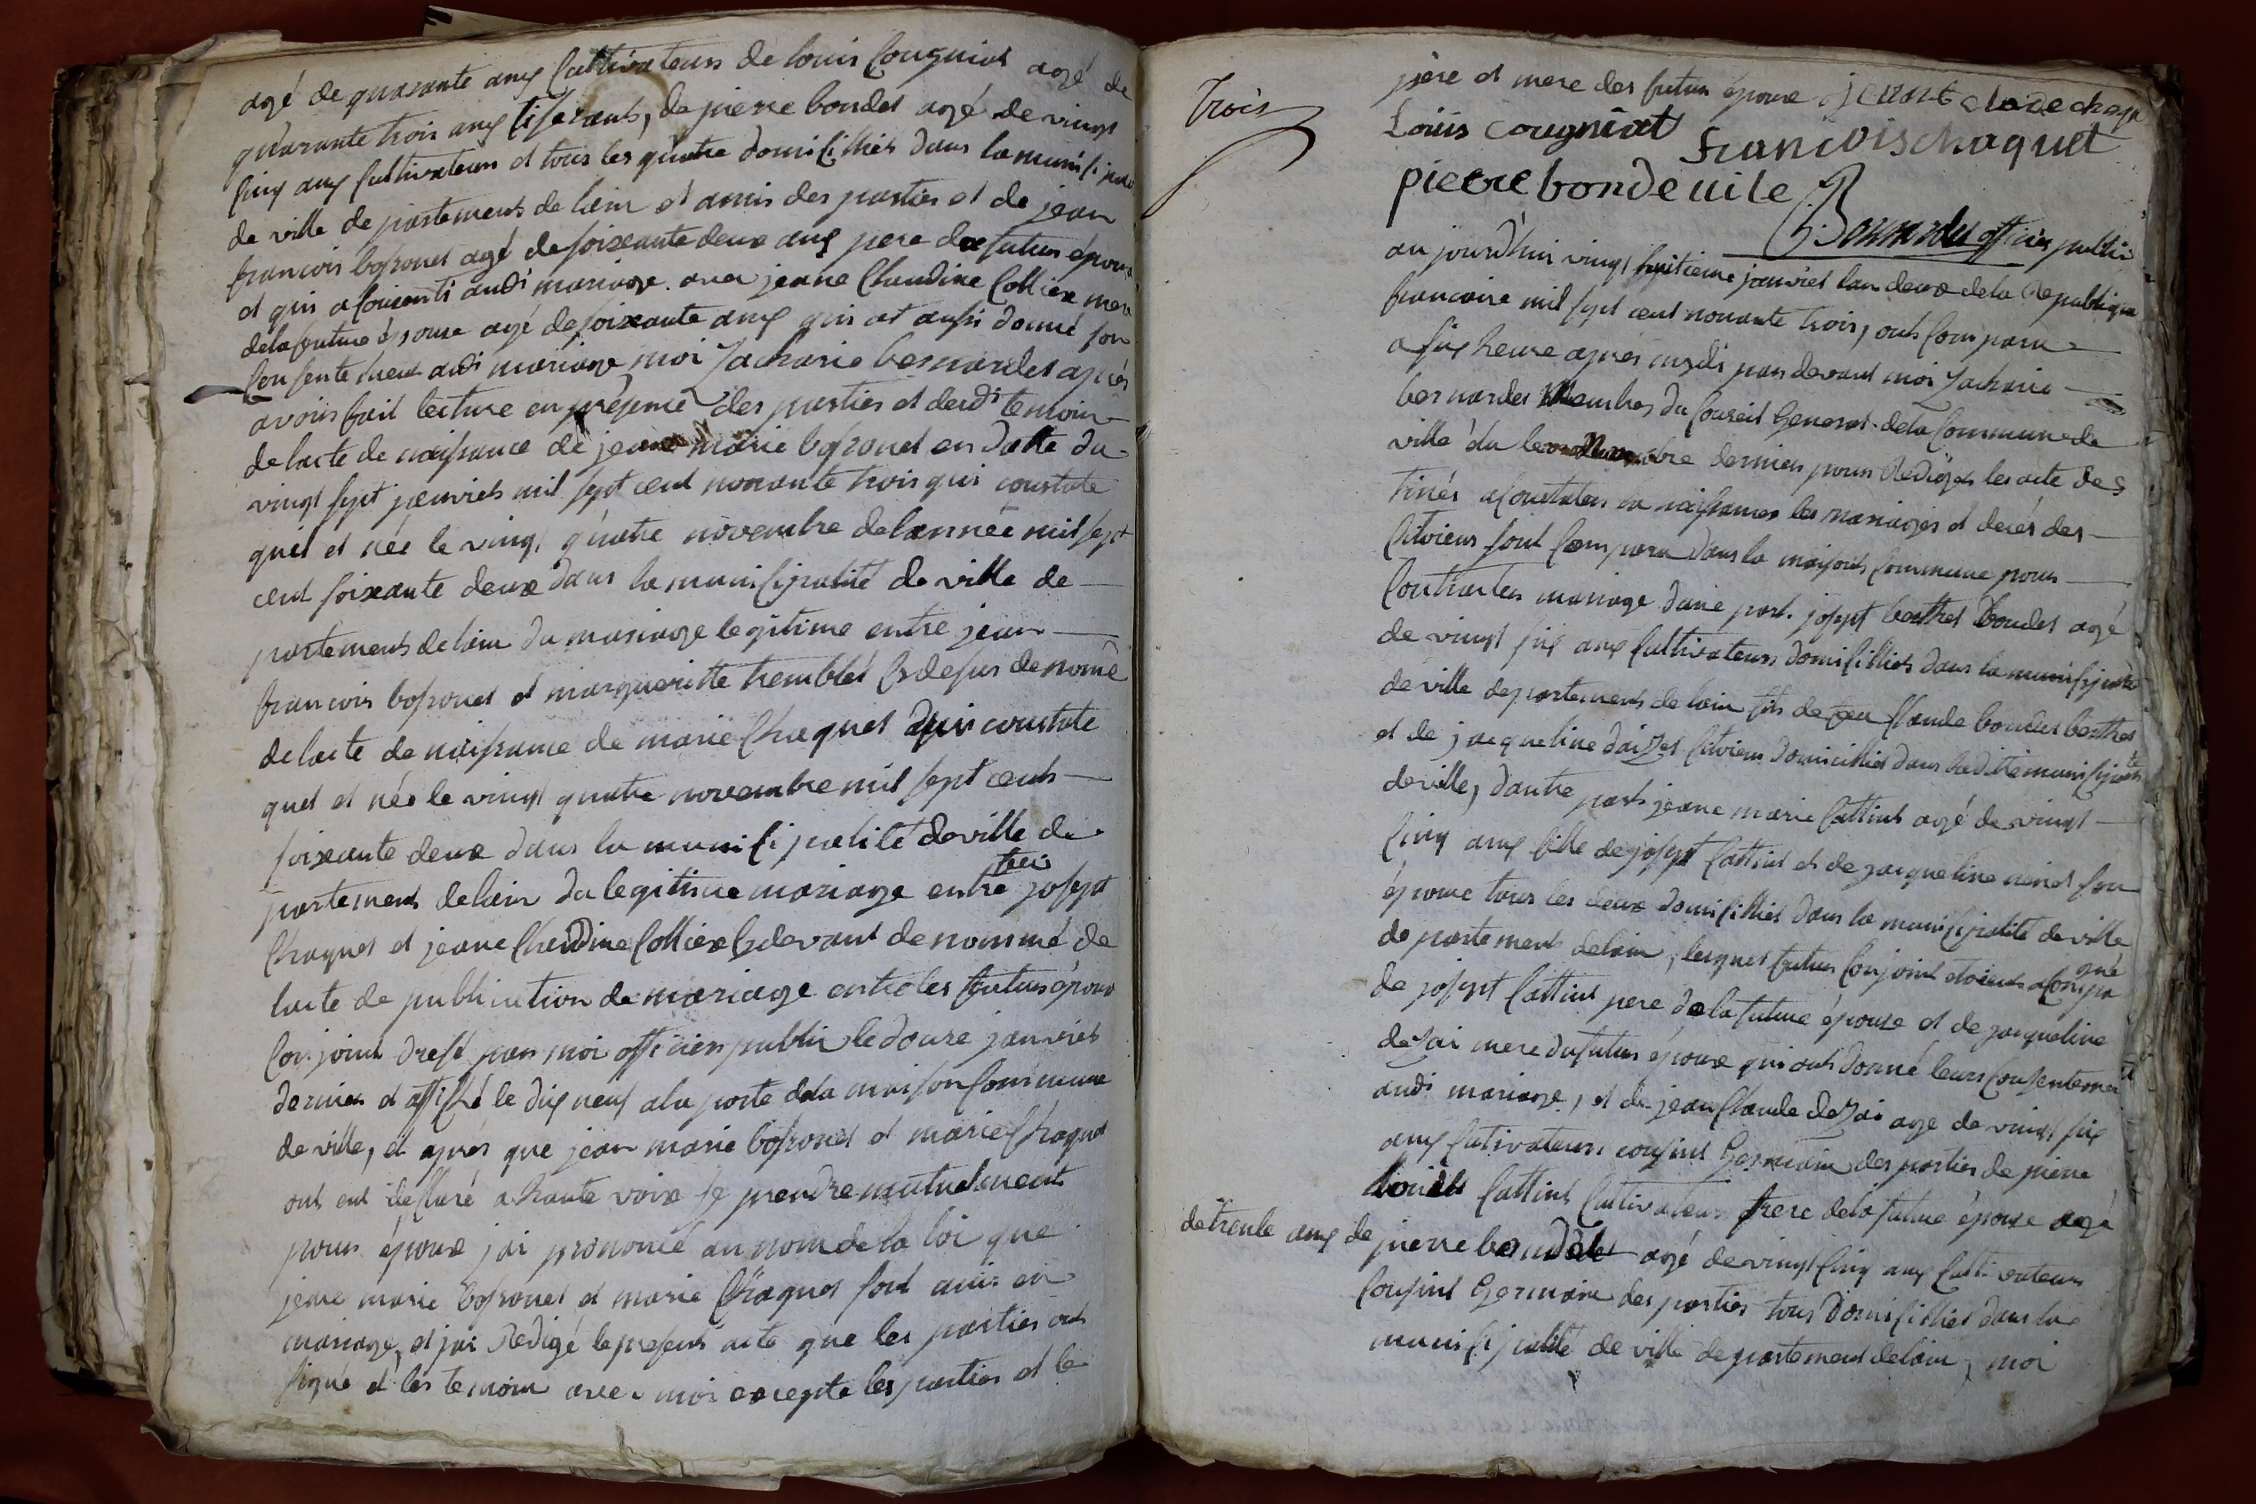 agé de quarante ans Cultivateurs de louis Cougniat agé de
quarante trois ans tiserants, de pierre bondet agé de vingt
cinq ans Cultivateurs et tous les quatre domicilliés dans la municipa
de ville departements de lain et amis des parties et de jean
francois bossonet agé de soixante deux ans pere du futur epoux
et qui a consenti audi mariage avec jeane Claudine Colliex mere
de la future épouse agé de soixante ans qui at aussi donné son
Consentement audi mariage moi Zacharie bernardet aprés
avoir fait lecture en présence des parties et desdi temoin
de lacte de naissance de jean marie bossonet en datte du
vingt sept janvier mil sept cent nonante trois qui constate
quil et née le vingt quatre novembre de lannée mil sept
cent soixante deux dans la municipalité de ville de
partements de lain du mariage legitime entre jean
francois bossonet et margueritte tremblet Cy desus denomé
de lacte de naissance de marie Chaquet qui constate
quel et née le vingt quatre novembre mil sept cents
soixante deux dans la municipalité de ville de
partement de lain du legitime mariage entre feu josept
Chaquet et jeane Claudine Collieux Cy devant denommé de
lacte de publication de mariage entre les futurs époux
Conjoint dressé par moi officier public le douze janvier
dernier et affiché le dix neuf a la porte de la maison Commune
de ville, et aprés que jean marie bossonet et marie Chaquet
ont eut declaré a haute voix se prendre mutuelment
pour époux jai prononcé au nom de la loi que
jean marie bossonet et marie Chaquet sont unis en
mariage, et jai Redigé le present acte que les parties ont
signé et les temoin avec moi excepte les parties et le
trois
père et mere des futur époux jeant clade chaqu
Louis cougniat francois chaquet
pierre bondeuile
Bernardet officier public
au jourd'hui vingt huitieme janvier lan deux de la Republique
francaise mil sept cent nonante trois, ont Comparu
a six heure aprés midi pardevant moi Zacharie
bernardet Membres du Conseil General de la Commune de
ville élu le novembre dernier pour Redigér les acte des
tinés a Constater la naissances les mariages et decés des
Citoiens sont Comparu dans la maison Commune pour
Contracter mariage dune part josept berthet bondet agé
de vingt six ans Cultivateurs domicilliés dans la municipalité
de ville departements de lain fils de feu Claude bondet berthet
et de jacqueline daizet Citoiens domicilliés dans ladite municipalité
de ville, dautre parts jeane marie Cattint agé de vingt
Cinq ans fille de josept Cattint et de jacqueline son
épouse tous les deux domicilliés dans la municipalité de ville
de partements de lain, lesquels futurs Conjoint etoient acompa gné
de josept Cattint pere de la future épouse et de jacqueline
dezai mere du futur époux qui ont donné leurs Consentement
audi mariage, et de jean Claude dezai age de vingt six
ans Cultivateurs cousint Germain des parties de pierre
Cattint Cultivateur frere de la future épouse agé
de trente ans de pierre bondet agé de vingt Cinq ans Cultivateurs
Cousint Germain des parties tous domicilliés dans la
municipalité de ville departement de lain, moi